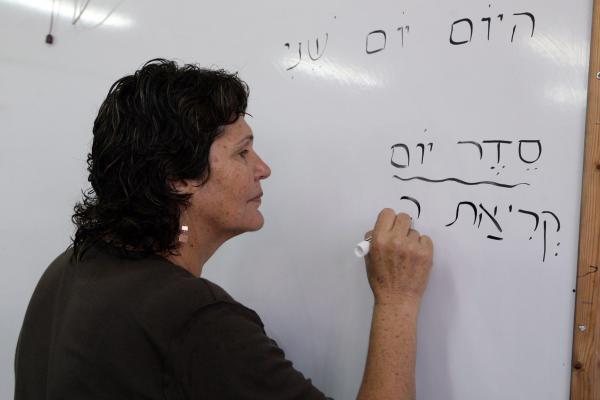 הַיּוֹם יוֹם שֵׁנִי
סֵדֶר יוֹם
קְרִיאַת